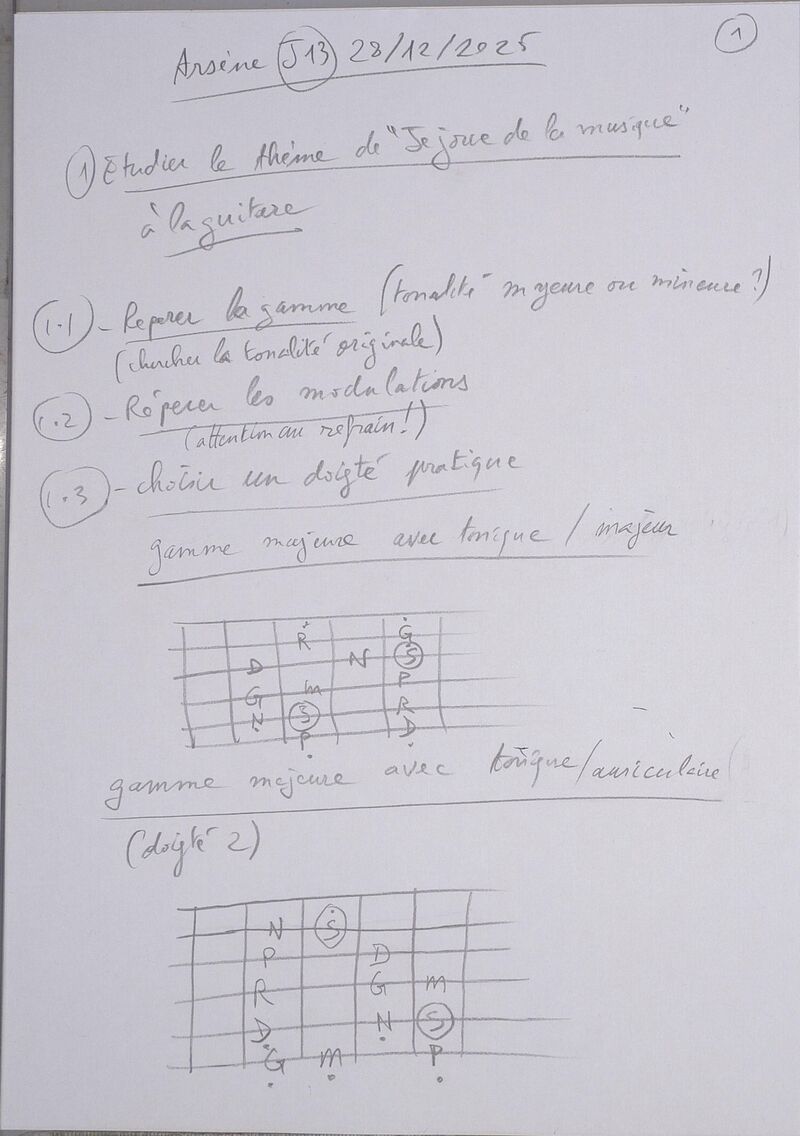 1
Arsène J13 28/12/2025
1 Etudier le thème de "Je joue de la musique"
à la guitare
1.1 - Reperer la gamme (tonalité majeure ou mineure?)
(chercher la tonalité originale)
1.2 - Réperer les modulations
(attention au refrain!)
1.3 - choisir un doigté pratique
gamme majeure avec tonique / majeur
R G
D N S
G m P
N S R
P D
gamme majeure avec tonique/auriculaire
(doigté 2)
N S
P D
R G m
D N S
G m P